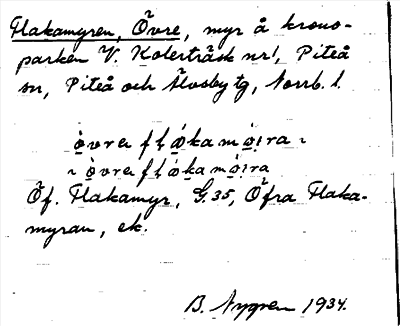 Flakamyren, Övre, myr å krono-
parken V. Kolerträsk nr 1, Piteå
sn, Piteå och Älvsby tg, Norrb. l.
övra flåkamöira
i övra flåkamöira
Öf. Flakamyr, G. 35, Öfra Flaka-
myran, ek.
B. Nygren 1934.